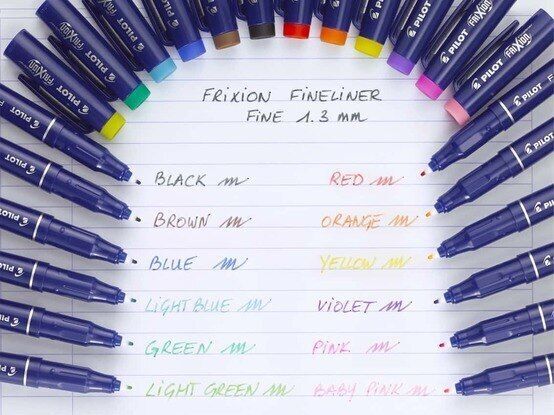 FRIXION FINELINER
FINE 1.3 mm
BLACK m
BROWN m
BLUE m
LIGHT BLUE m
GREEN m
LIGHT GREEN m
RED m
ORANGE m
YELLOW m
VIOLET m
PINK m
BABY PINK m
PILOT
FRIXION
PILOT
FRIXION
PILOT
PILOT
PILOT
PILOT
PILOT
FRIXION
PILOT
PILOT
PILOT
PILOT
PILOT
PILOT